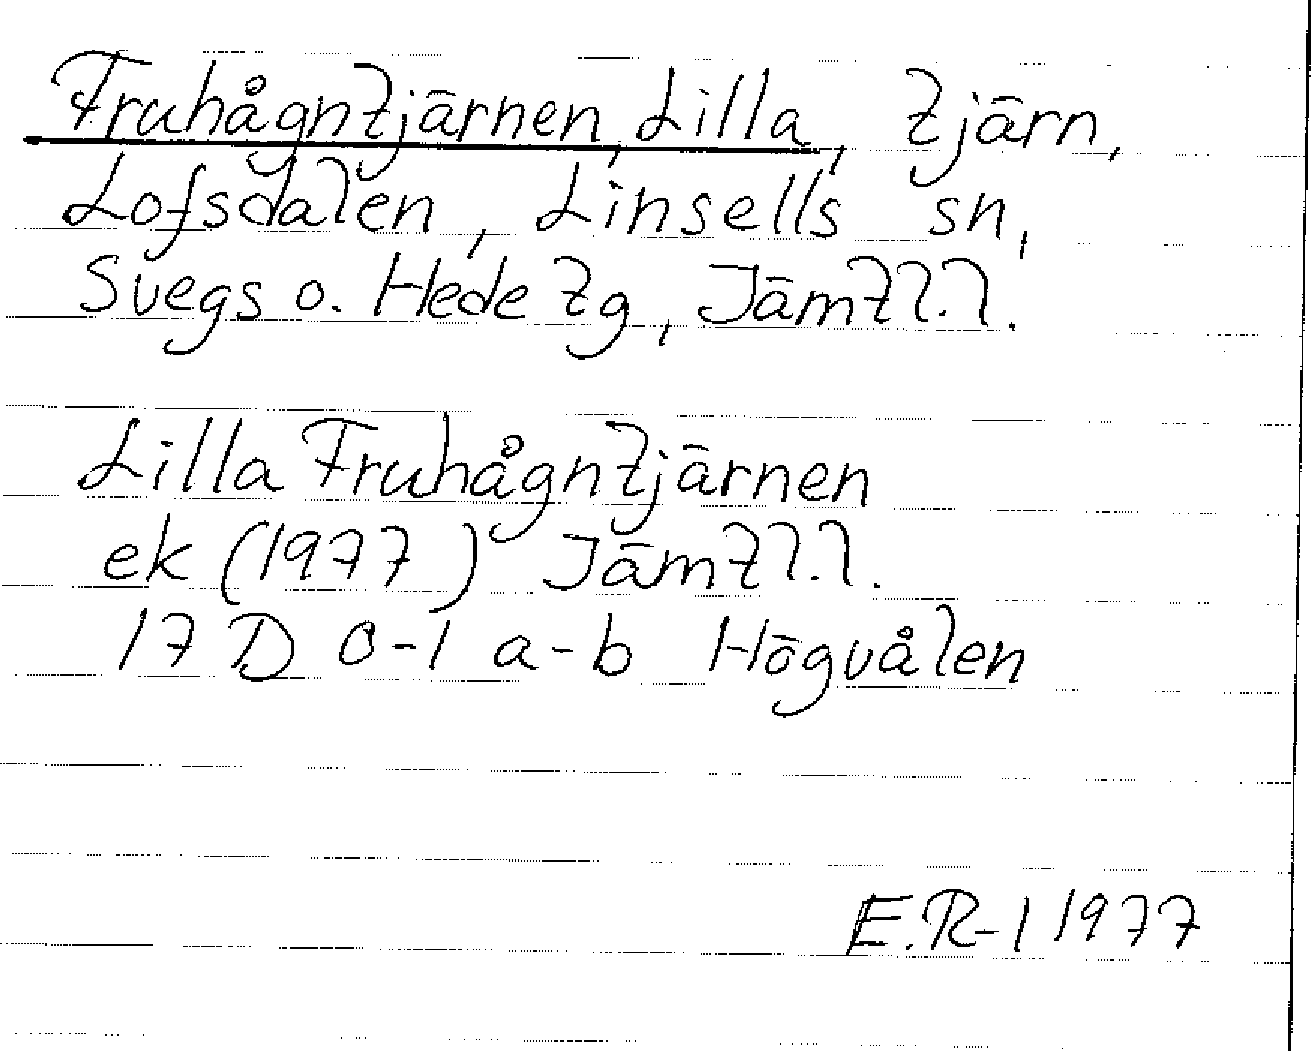 Fruhågntjärnen, Lilla, tjärn,
Lofsdalen, Linsells sn,
Svegs o. Hede tg, Jämtl.l.
Lilla Fruhågntjärnen
ek (1977) Jämtl.l.
17 D 0-1 a-b Högvålen
E.R-l 1977